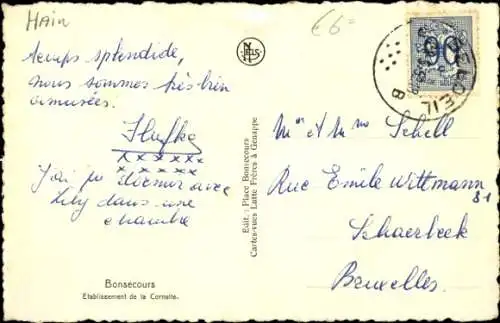 Hain
€6=
temps splendide,
nous sommes très bien
amusées.
xxxxxx
J'ai pu dormir avec
Lily dans une
chambre
Bonsecours
Etablissement de la Cornette.
Edit.: Place Bonsecours
Cartes-vues Lutte Frères à Genappe
NELS
90
BELOEIL
B
Mr et Mme Schell
Rue Emile Wittmann
81
Schaerbeek
Bruxelles.